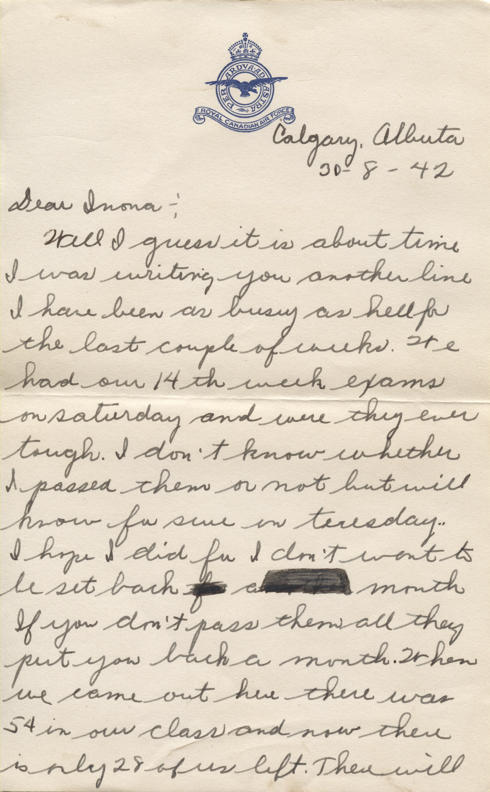 PER ARDVA AD ASTRA
ROYAL CANADIAN AIR FORCE
Calgary, Alberta
30 - 8 - 42
Dear Inona -:
Well I guess it is about time
I was writing you another line
I have been as busy as hell for
the last couple of weeks. We
had our 14th week exams
on saturday and were they ever
tough. I don't know whether
I passed them or not but will
know for sure on teresday..
I hope I did for I don't want to
be set back a month
If you don't pass them all they
put you back a month. When
we came out here there was
54 in our class and now there
is only 28 of us left. There will